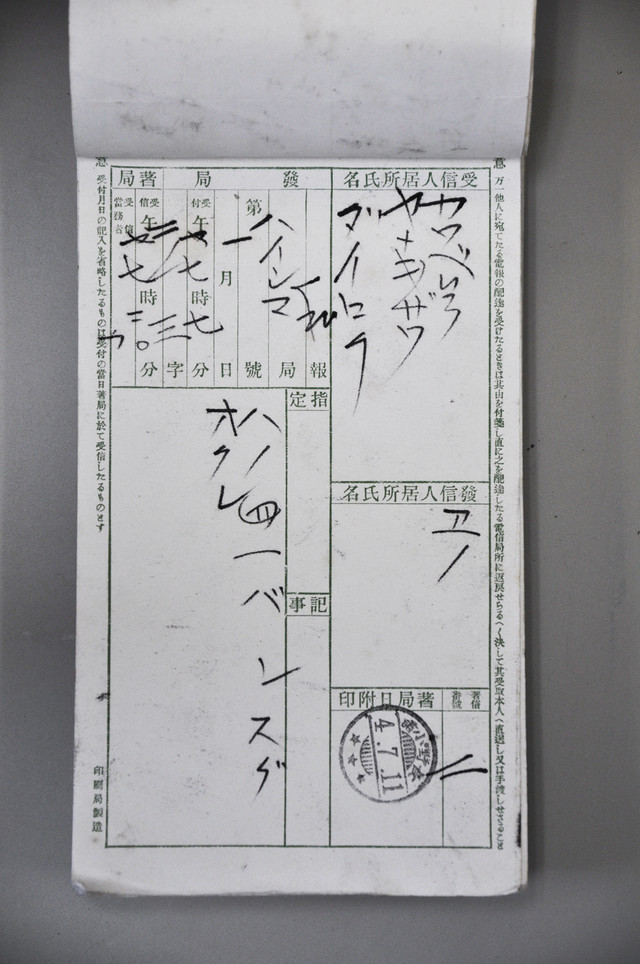 意 万一他人に宛てたる電報の配達を受けたるときは其由を付箋し直に之を配達したる電信局所に返戻せらるへく決して其受取本人へ直送し又は手渡しせさること
受信人居所氏名
ヤナギザワ
ダイロク
發信人居所氏名
著局日附印
著信番號
二
4.7.11
發局
著局
第 號
報
局
月 日
受付 午 七時 七分
字
受信 午 七時 三〇分
受信當務者
指定
記事
ハノ四一バンスグ
オクレ
意 受付月日の記入を省略したるものは受付の當日著局に於て受信したるものとす
印刷局製造